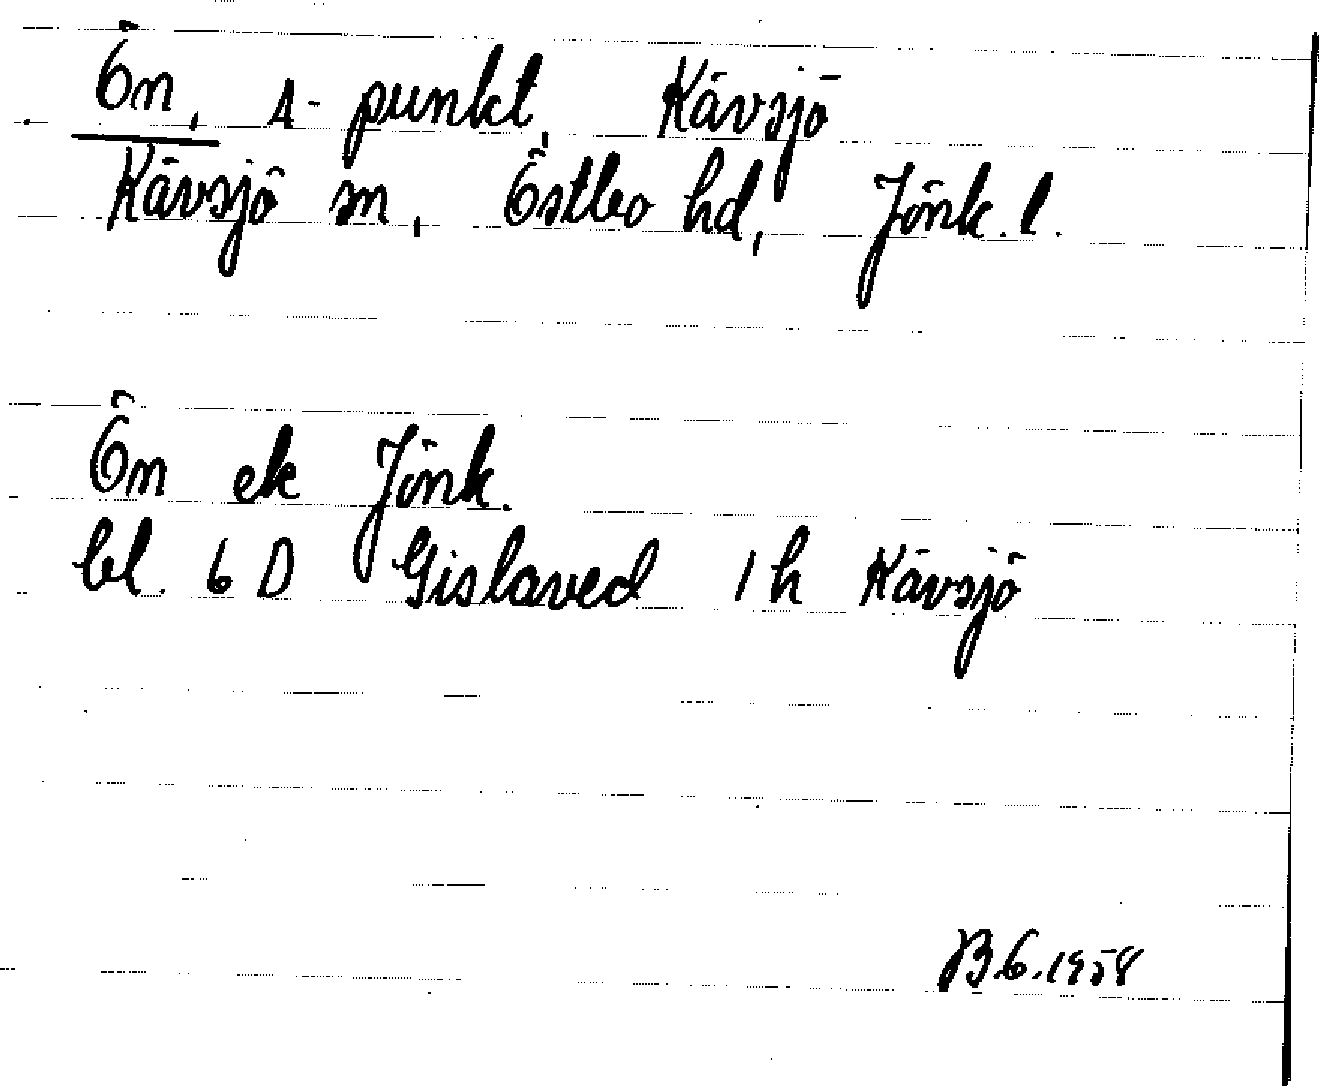 Ön, A-punkt, Kävsjö
Kävsjö sn, Östbo hd, Jönk. l.
Ön ek Jönk.
bl. 6 D Gislaved 1 h Kävsjö
B.6.1958